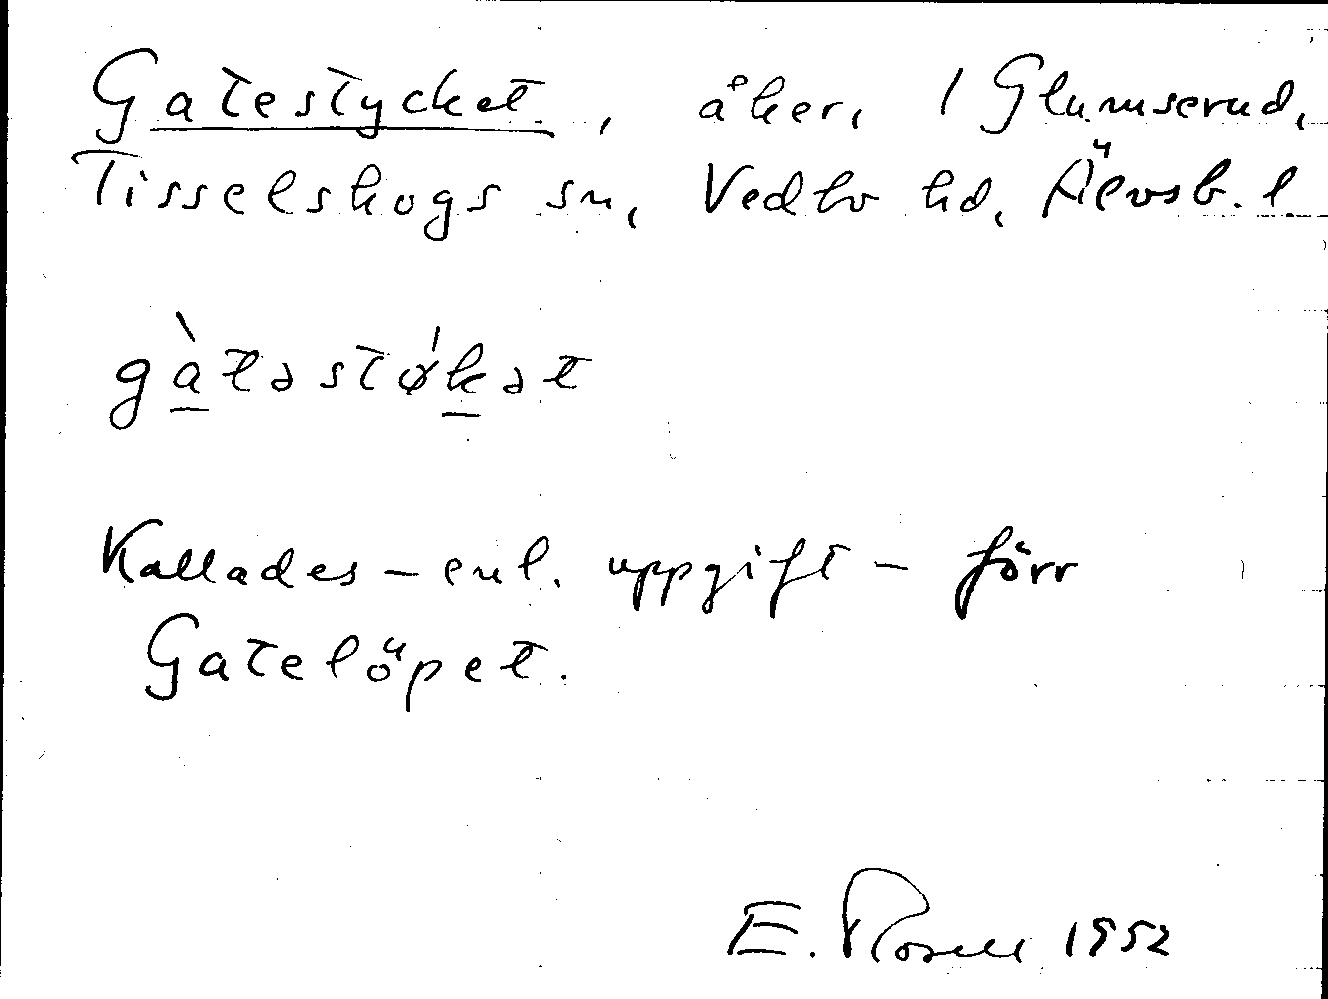 Gatestycket, åker, 1 Glumserud,
Tisselskogs sn, Vedbo hd, Älvsb. l
gàtəstǿkət
Kallades – enl. uppgift – förr
Gatelöpet.
E. Rosell 1952